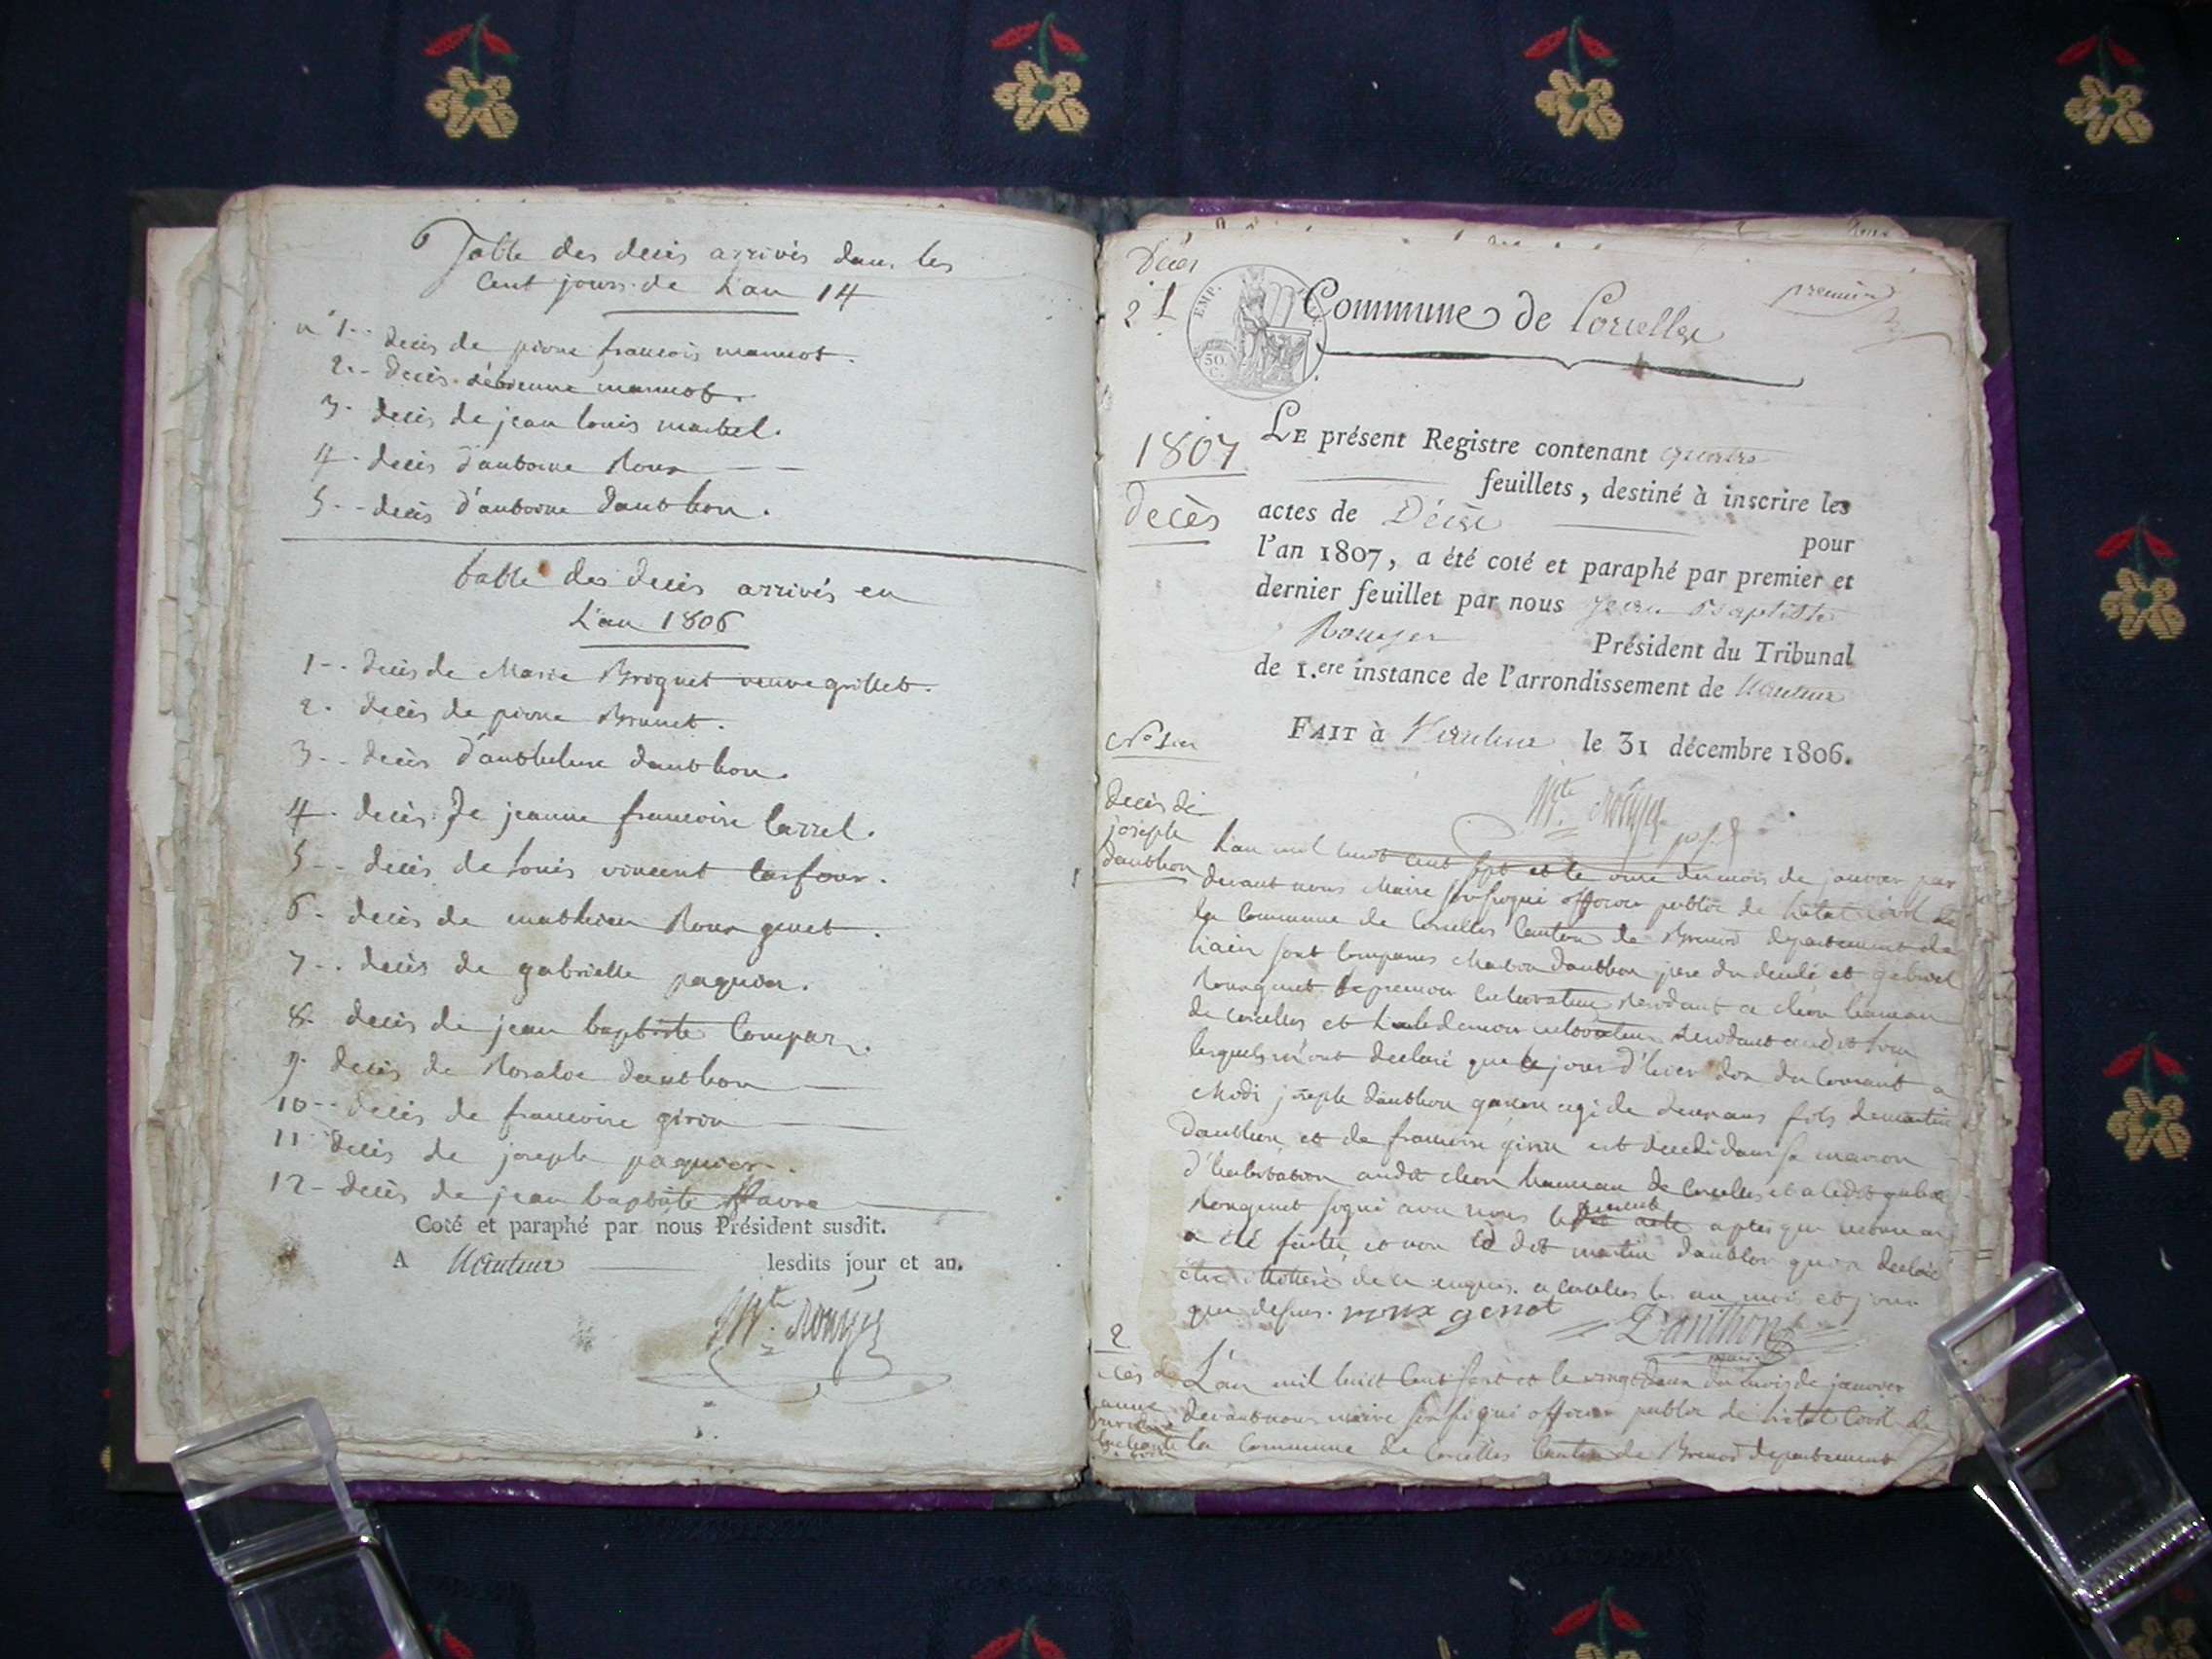 Table des decès arrivés dans les
Cent jours de L'an 14
n° 1-- decès de pierre françois mannot.
2.- decès d'étienne mannot.
3- decès de jean louis
4- decès d'antoine Roux
5-- decès d'antoine danthon.
table des decès arrivés en
L'an 1806
1-- decès de Marie Broquet veuve grillet.
2. decès de pierre Brunet.
3-- decès d'anthelme danthon.
4- decès de jeanne francoise carrel.
5-- decès de Louis vincent
6- decès de mathieu Roux genet.
7-- decès de gabrielle paquier.
8- decès de jean baptiste Compar
9- decès de Rosalie danthon
10-- decès de francoise girin
11- decès de joseph paquier.
12- decès de jean baptiste favre
Coté et paraphé par nous Président susdit.
A Nantua lesdits jour et an.
Bte. Rouyer
Décès
2 1
EMP.
50
Commune de Corcelles
premier
1807
Decès
LE présent Registre contenant quatre
feuillets, destiné à inscrire les
actes de Décès pour
l'an 1807, a été coté et paraphé par premier et
dernier feuillet par nous Jean Baptiste
Rouyer Président du Tribunal
de 1.ere instance de l'arrondissement de Nantua
FAIT à Nantua le 31 décembre 1806.
Bte. Rouyer
N° 1er
decès de
joseph
danthon
L'an mil huit cent sept et le onze du mois de janvier par
devant nous Maire soussigné officier public de l'état civil de
la Commune de Corcelles Canton de Brenod departement de
l'ain sont comparus Martin danthon pere du decedé et gabriel
Rouxgenet le premier cultivateur Residant a cheon hameau
de corcelles et l'autre cultivateur Residant audit lieu
lesquels m'ont declaré que le jour d'hier dix du courant a
Midi joseph danthon garcon agé de deux ans fils de martin
danthon et de francoise girin est decedé dans sa maison
d'habitation audit cheon hameau de Corcelles et a ledit gabriel
Rouxgenet signé avec nous le present acte apres que lecture en
a été faite, et non le dit martin danthon qui a declaré
être illitteré de ce enquis. a corcelles les an mois et jour
que dessus. roux genet Danthon
2
L'an mil huit cent sept et le vingt deux du mois de janvier
devant nous maire soussigné officier public de l'état Civil de
la Commune de Corcelles Canton de Brenod departement